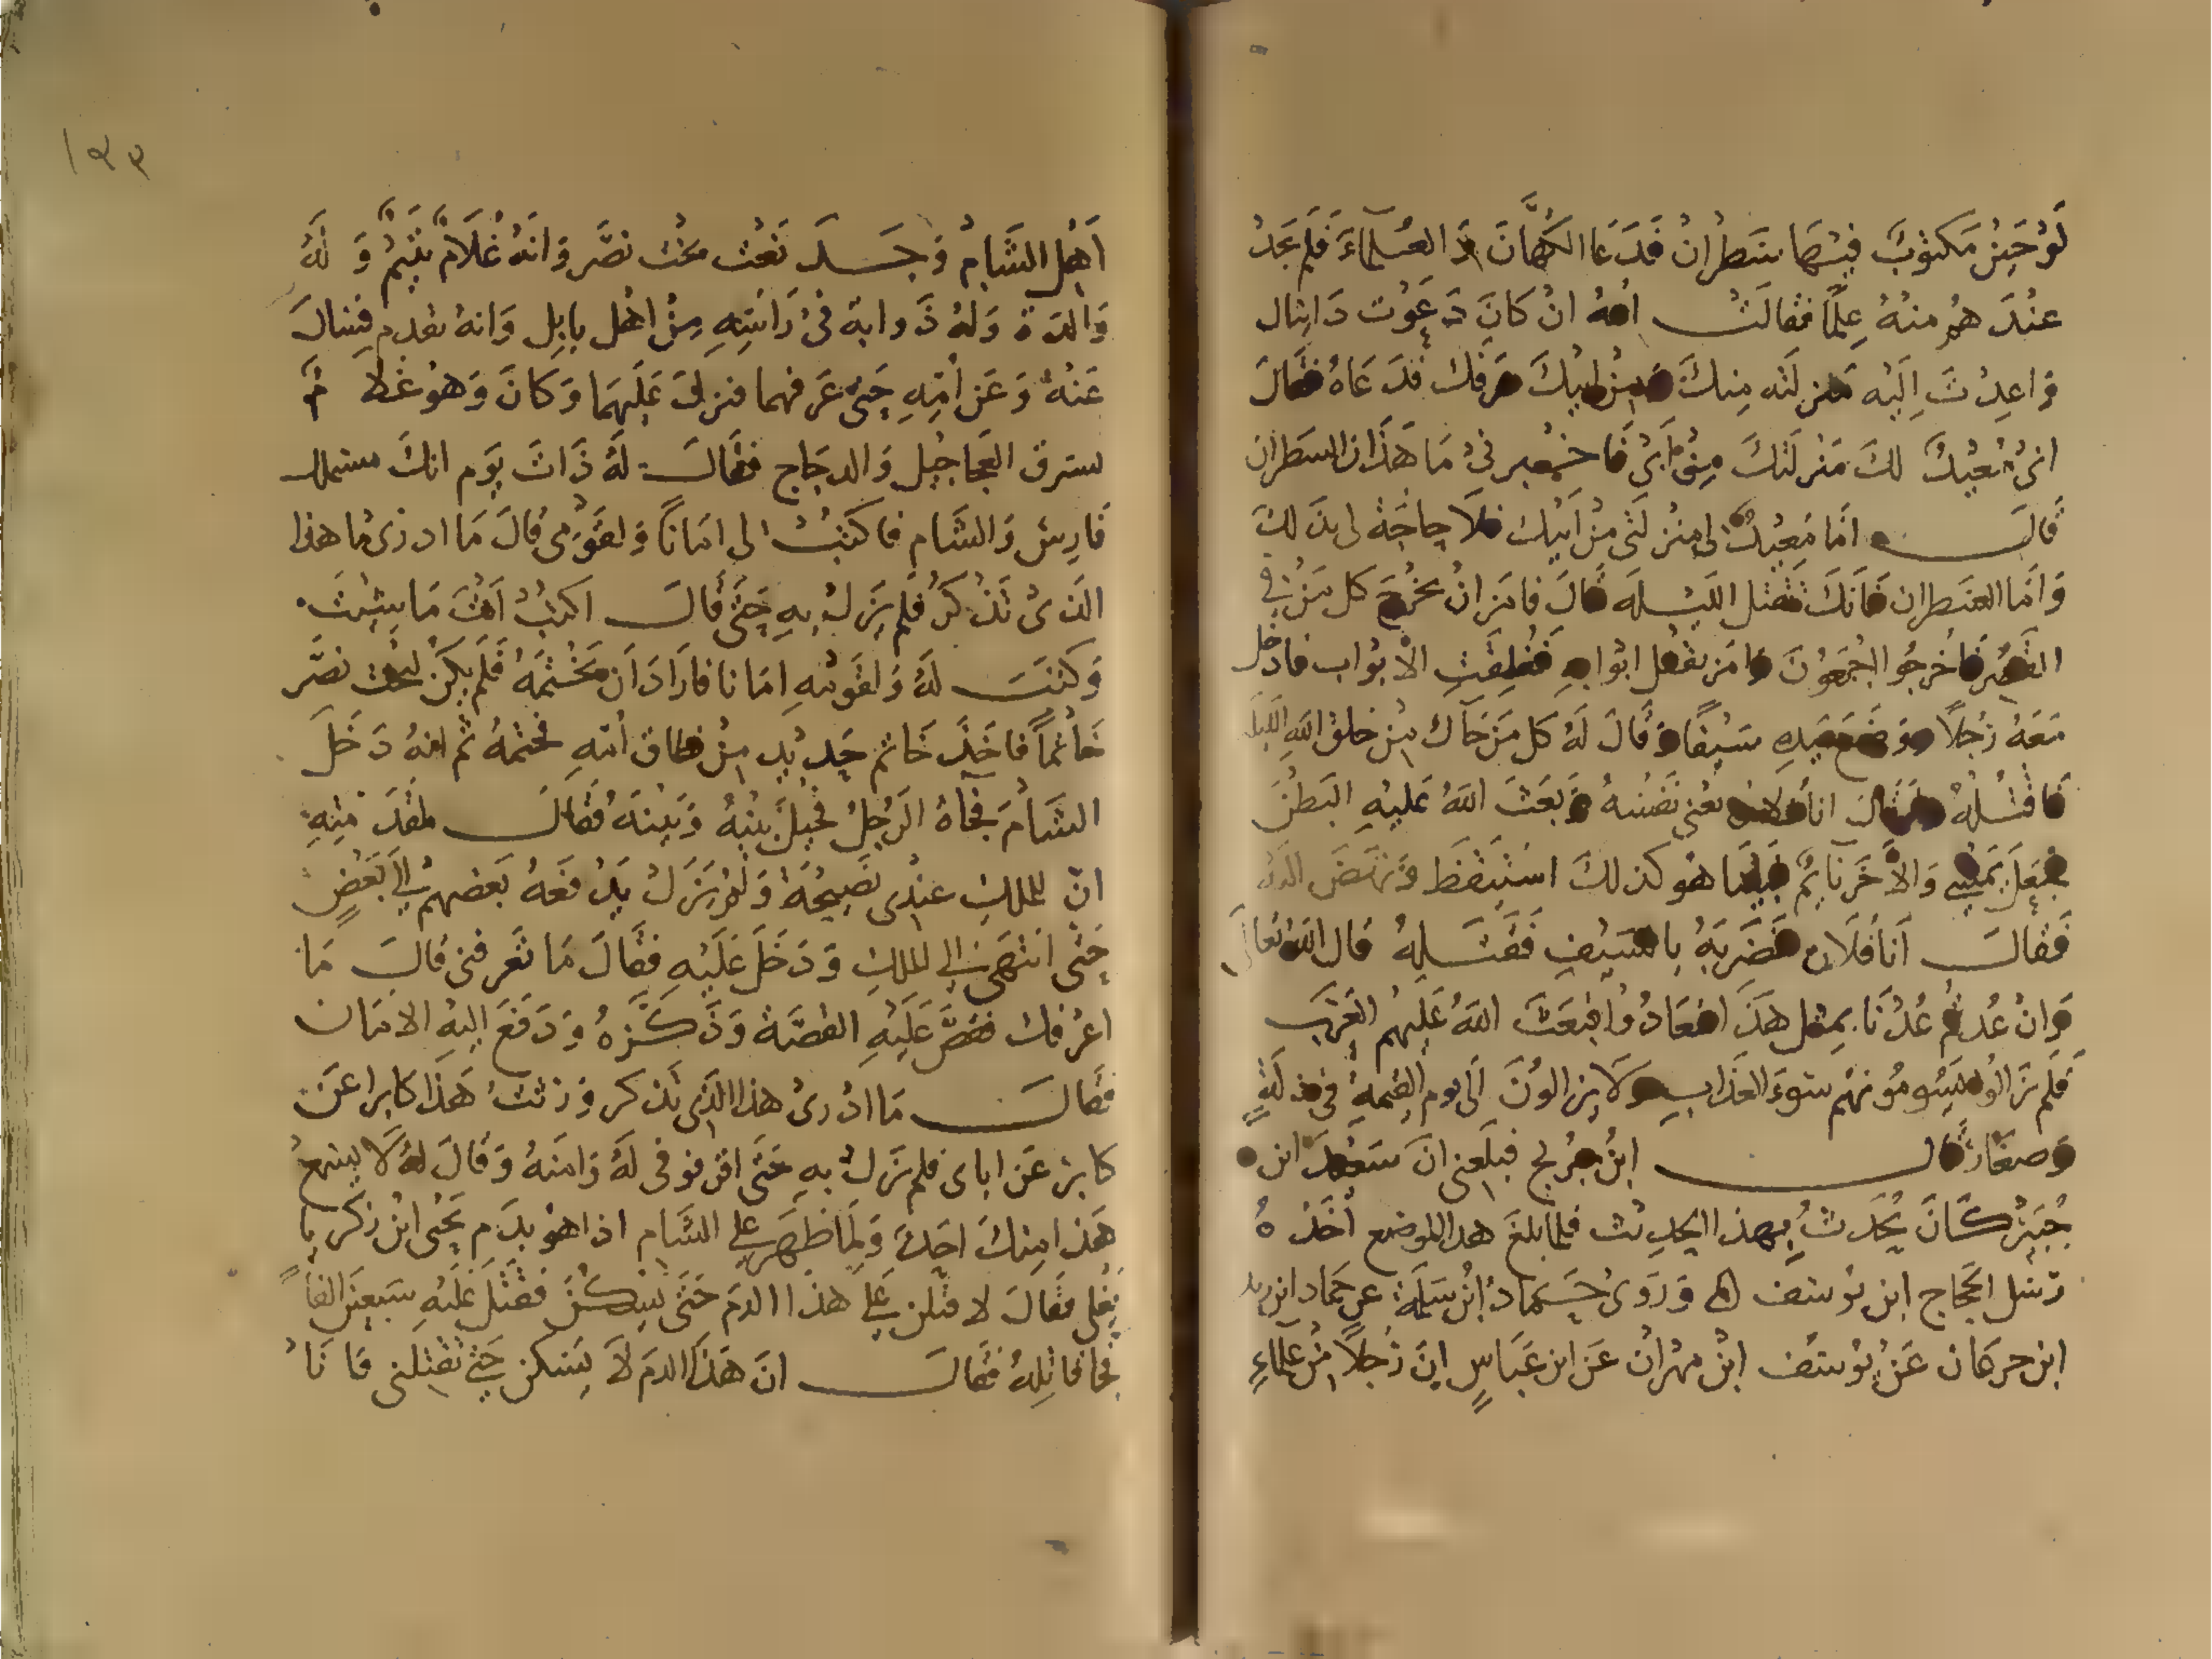 لَوْحَيْنِ مَكتوبٌ فِيْهَا سَطرَانْ فَدَعَا الكُهَّانَ وَ العُلماءَ فَلم يَجدْ
عنْدَ هُم منْهُ عِلماً فقَالَتْ امهُ انْ كَانَ دَعَوْتَ دَانيال
وَاعدْتَ اِلَيْه مَنزلَته مِنكَ مِنْ ابيْكَ فدَعَاهُ فقالَ
انىْ مُعيْدٌ لكَ مَنزلَتكَ مِنْ اَبىْ فَاخبرنىْ مَا هَذَان السَطران
قالَ امَا مُعيْدٌ لى منزلَتى منْ اَبيْك فلَا حاجَةَ لى بذَلكَ
وَامَا السَطران فانكَ تقتل الليْلَةَ قَالَ فامَر انْ يخْرُجَ كل مَنْ في
القصْر فاخرجُوا اجْمعُونَ وامَر بقفل ابْوابهِ فغُلِقَتِ الابْواب فادخل
مَعَهُ رَجُلًا وَ سَيْفًا وَقَالَ لَهُ كل مَنْ جَآك مِنْ خلق اللهِ الليلَة
فَاقْتُلهُ وَان قالَ انا فلان يعْنى نفسَهُ وَبَعثَ اللهُ عَليهِ البَطنَ
فجَعلَ يَمشي وَالآخَر نَائمٌ فبيْنَا هُو كذلكَ اسْتيْقَظَ وَنَهضَ اليه
فَقالَ اَنا فلَان فضَرَبَهُ بالسَيْفِ فَقتَلهُ قال اللهُ تعالى
وَانْ عُدتُمْ عُدْنَا بمثل هَذَا فعَادُوا فبعَثَ اللهُ عَلَيهمْ العَرَبَ
فلَم يَزَالوا يَسُومُونهُم سوءَ العَذابِ وَلَا يزالونَ الَى يوم القيمةِ في ذلةٍ
وَصغَارٍ قال ابنُ جُرَيج فبلَغنى انَ سَعيد ابن
جُبَيْر كَانَ يُحَدثُ بهذا الحديث فلما بلغَ هذا الموضع اَخَذهُ
رسل الحَجاج ابن يوسف وَرَوَىْ حَمادُ ابْنُ سَلمَةَ عن حَماد ابن
ابن عَنْ يوسف ابْنْ مهْران عَن ابن عَبَاسٍ اِنَ رَجُلًا مِنْ علماءِ
اَهْل الشَامْ وَجَدَ نَعْت بخْت نصَّر وَانهُ غُلَامٌ يَتيْمٌ وَ لَهُ
وَالدَة وَلهُ ذَوابة فىْ رَاسِهِ مِنْ اهْل بابل وَانهُ يقدم فيسَالَ
عَنهُ وَعَن اُمِهِ حَتى عَرفهما فنزلَ عَلَيهمَا وَكانَ وَهُو غلام
يسرق العجاجيْل وَالدجَاج فقَالَ لَهُ ذَاتَ يَوم انكَ ستملك
فَارِسَ وَالشَام فاكتبْ لى امَاناً وَلقَوْمى قالَ مَا ادرى ما هذا
الذىْ تَذْكرُ فلم يَزلْ بهِ حَتى قَالَ اكتبْ اَنتَ مَا شئتَ
وَكتبَ لَهُ وَلقَومهِ امَانا فارَادَ اَن يَخْتمَهُ فَلَم يكنْ لبخت نصَّر
خَاتماً فاخَذَ خاتم حَديْد مِنْ امهِ فختمهُ ثم انهُ دَخلَ
الشَام فجاهُ الرَجل فحيْلَ بَيْنهُ وَبَيْنَهُ فقالَ لمقدَميْهِ
انَ للملكِ عنْدى نَصيحَةً وَلَم يَزلْ يَدْفعهُ بَعضهمْ الى بَعْضٍ
حَتى انتهى الى الملكِ وَدَخَلَ عَلَيْهِ فقَالَ مَا تعرفنى قالَ مَا
اعرفكَ فقَصَّ عَلَيهِ القصَّة وَذكَرهُ وَدَفعَ اليهِ الامَان
فقالَ مَا ادْرىْ هذا الذى تذكر وَرثتُ هَذا كابرا عَن
كابر عَن اباى فلم يَزلْ بهِ حَتى اقر فوفى لَهُ وَامنهُ وَقَالَ لهُ لَا يسمعْ
هَذا منكَ احَد وَلما ظهَر على الشَام اذا هوْ بدَم يَحْيى ابْن زكريا
يَغْلى فقَالَ لاقتلن عَلى هذَا الدم حَتى يَسْكنْ فقتَلَ عَلَيهِ سَبعيْن الفاً
فجا قاتلهُ فقالَ انَ هَذَا الدم لَا يَسكن حَتى تقتلنى فانَا